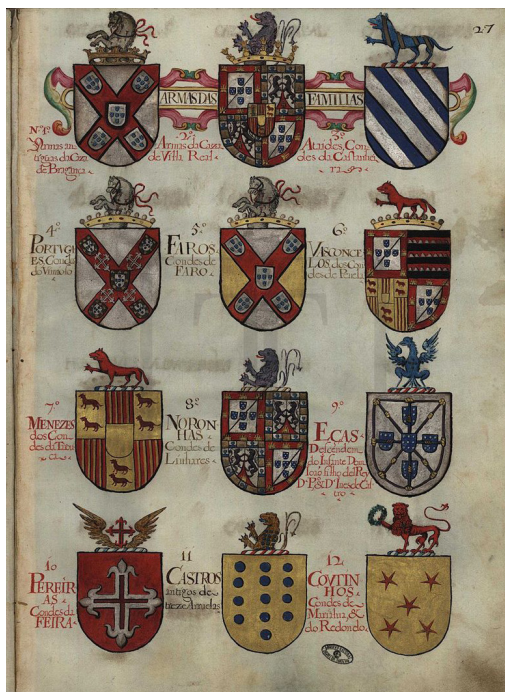 27
ARMAS DAS FAMILIAS
Nº 1º
Armas an
tiguas da Caza
de Bragança
2º
Armas da Caza
de Villa Real
3º
Ataides, Con
des da Castanhª
4º
PORTUGU
ES Conde
do Vimioso
5º
FAROS
Condes de
FARO
6º
VASCONCE
LOS dos Con
des de Penela
7º
MENEZES
dos Con
des da
8º
NORON
HAS
Condes de
Linhares
9º
EÇAS
Descendem
do Infante Dom
João filho del Rey
10
PEREIR
AS
Condes da
FEIRA
11
CASTROS
antigos de
treze Arruelas
12
COVTIN
HOS
Condes de
Marialva, &
do Redondo